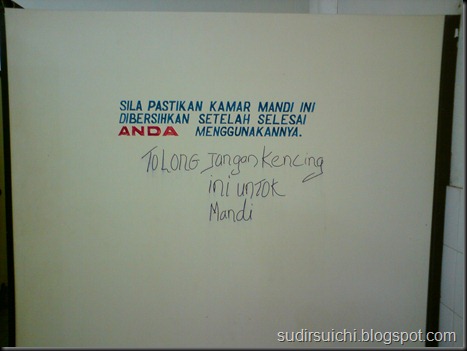 SILA PASTIKAN KAMAR MANDI INI
DIBERSIHKAN SETELAH SELESAI
ANDA MENGGUNAKANNYA.
TOLONG Jangan kencing
ini UNTOK
Mandi
sudirsuichi.blogspot.com